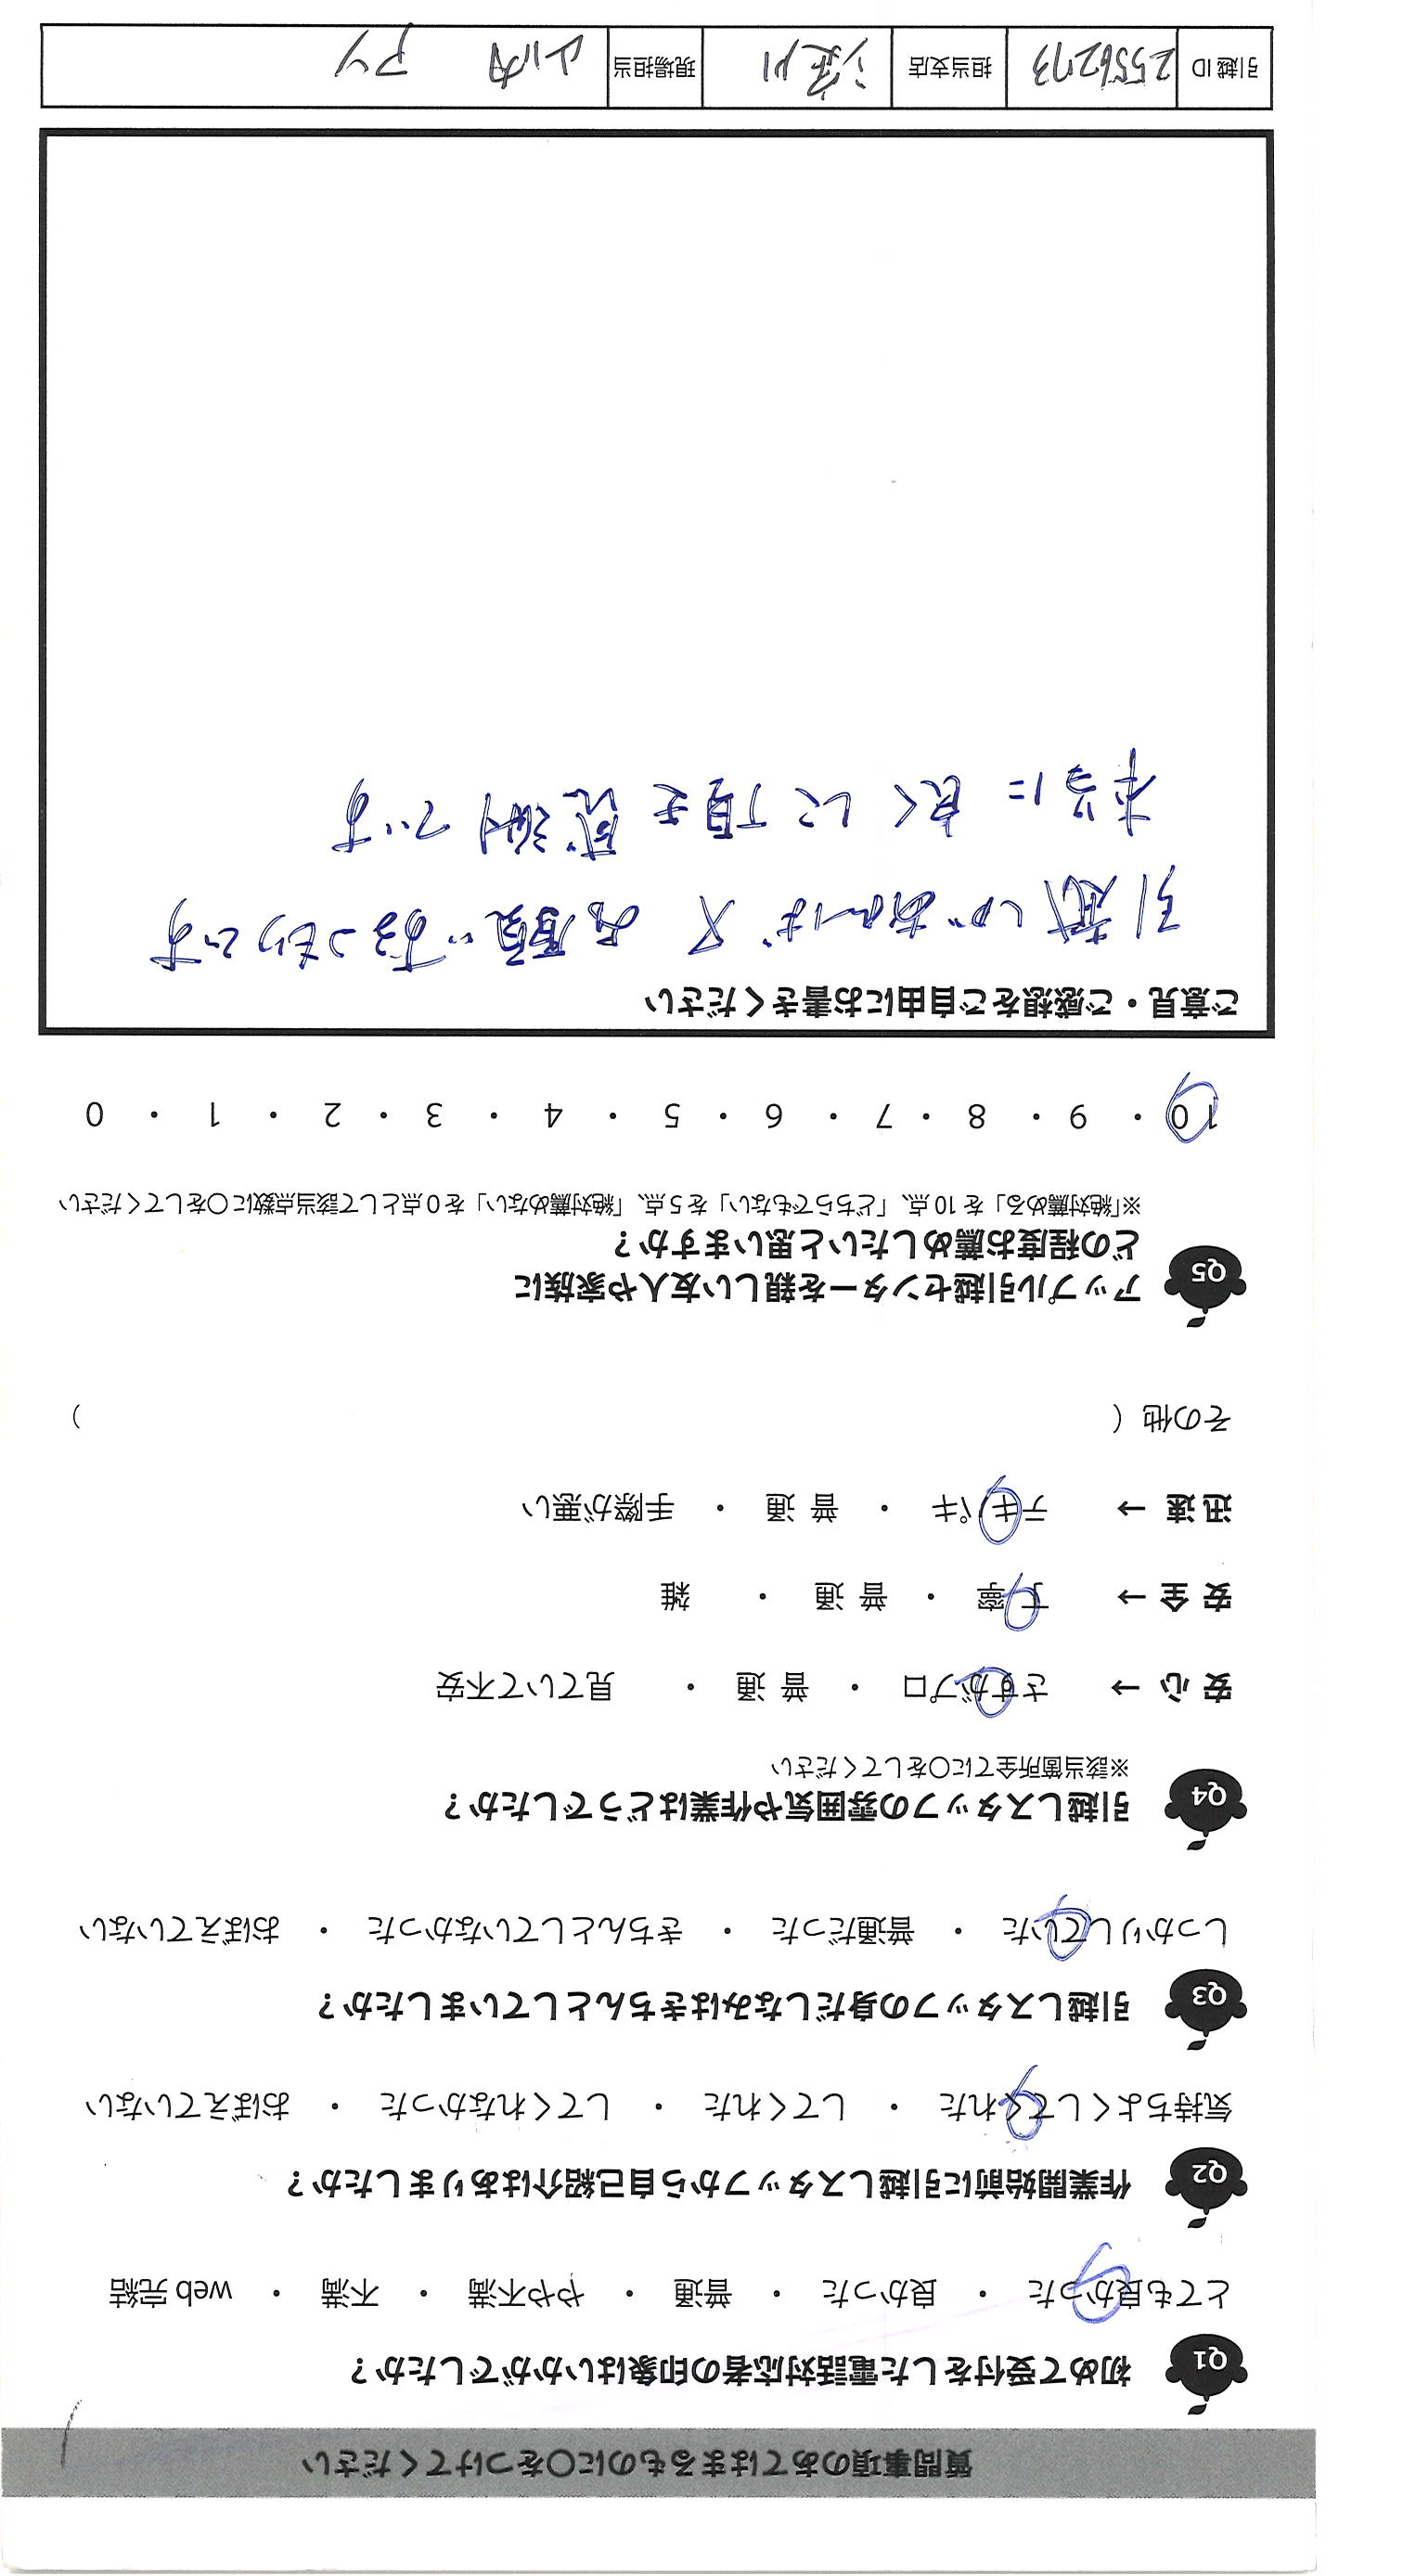 質問事項のあてはまるものに○をつけてください
Q1 初めて受付をした電話対応者の印象はいかがでしたか？
とても良かった ・ 良かった ・ 普通 ・ やや不満 ・ 不満 ・ web 完結
Q2 作業開始前に引越しスタッフから自己紹介はありましたか？
気持ちよくしてくれた ・ してくれた ・ してくれなかった ・ おぼえていない
Q3 引越しスタッフの身だしなみはきちんとしていましたか？
しっかりしていた ・ 普通だった ・ きちんとしていなかった ・ おぼえていない
Q4 引越しスタッフの雰囲気や作業はどうでしたか？
※該当箇所全てに○をしてください
安 心 → さすがプロ ・ 普 通 ・ 見ていて不安
安 全 → 丁 寧 ・ 普 通 ・ 雑
迅 速 → テキパキ ・ 普 通 ・ 手際が悪い
その他（ ）
Q5 アップル引越センターを親しい友人や家族に
どの程度お薦めしたいと思いますか？
※「絶対薦める」を 10 点、「どちらでもない」を 5 点、「絶対薦めない」を 0 点として該当点数に○をしてください
10 ・ 9 ・ 8 ・ 7 ・ 6 ・ 5 ・ 4 ・ 3 ・ 2 ・ 1 ・ 0
ご意見・ご感想をご自由にお書きください
引越しがあれば又お願いするつもりです
本当に良くして頂き感謝です
引越 ID 2556273 担当支店 淀川 現場担当 山内 アン